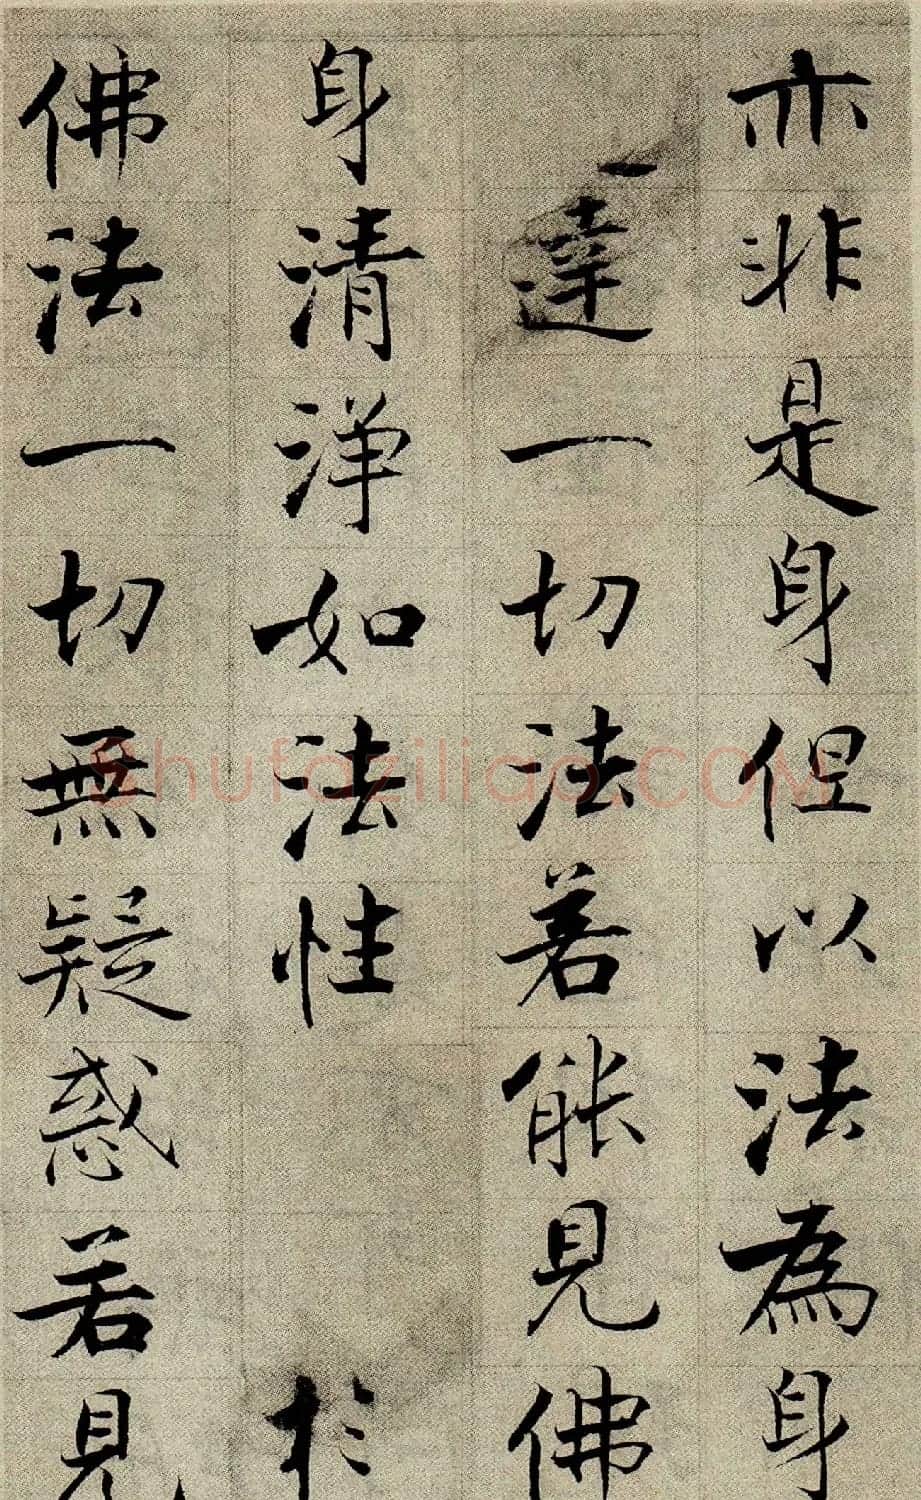 亦非是身但以法為身
達一切法若能見佛
身清淨如法性於
佛法一切無疑惑若見
Shufaziliao.COM